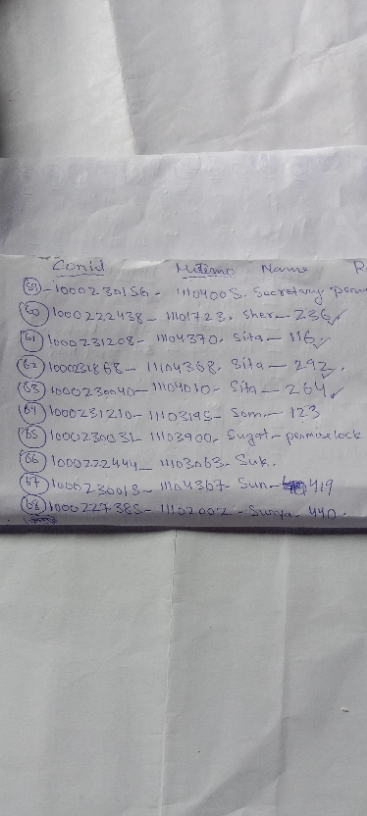 Conid Mitimo Name R
59 - 1000230156 - 11104005. Secretary perm
60 1000222438 - 11101723. Sher - 236 ✓
61 1000231208 - 11104370. Sita - 116 ✓
62 1000231868 - 11104368. Sita - 292 ✓
63 1000230040 - 11104010 - Sita - 264 ✓
64 1000231210 - 11103195 - Som - 123
65 1000230031 - 11103900 - Sugat - permiselock
66 1000222444 - 11103063 - Suk.
67 1000230013 - 11104367 - Sun - 419
68 1000227385 - 11102002 - Surya - 440.